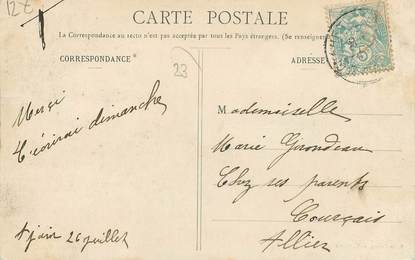 12 €
CARTE POSTALE
La Correspondance au recto n'est pas acceptée par tous les Pays étrangers. (Se renseigner
CORRESPONDANCE
ADRESSE
23
Merci
T'écrirai dimanche
26 juillet
Mademoiselle
Marie Girondeau
Chez ses parents
Courçais
Allier